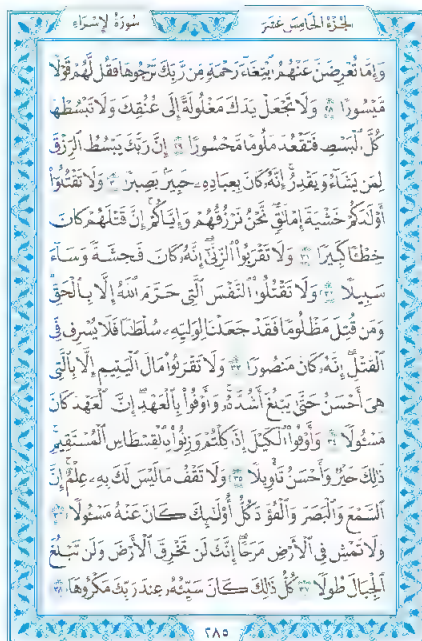 سُورَةُ الإِسْرَاءِ الجُزْءُ الخَامِسَ عَشَرَ
وَإِمَّا تُعْرِضَنَّ عَنْهُمُ ٱبْتِغَآءَ رَحْمَةٍ مِّن رَّبِّكَ تَرْجُوهَا فَقُل لَّهُمْ قَوْلًا
مَّيْسُورًا ٢٨ وَلَا تَجْعَلْ يَدَكَ مَغْلُولَةً إِلَىٰ عُنُقِكَ وَلَا تَبْسُطْهَا
كُلَّ ٱلْبَسْطِ فَتَقْعُدَ مَلُومًا مَّحْسُورًا ٢٩ إِنَّ رَبَّكَ يَبْسُطُ ٱلرِّزْقَ
لِمَن يَشَآءُ وَيَقْدِرُ إِنَّهُۥ كَانَ بِعِبَادِهِۦ خَبِيرًۢا بَصِيرًا ٣٠ وَلَا تَقْتُلُوٓا۟
أَوْلَـٰدَكُمْ خَشْيَةَ إِمْلَـٰقٍ نَّحْنُ نَرْزُقُهُمْ وَإِيَّاكُمْ إِنَّ قَتْلَهُمْ كَانَ
خِطْـًٔا كَبِيرًا ٣١ وَلَا تَقْرَبُوا۟ ٱلزِّنَىٰٓ إِنَّهُۥ كَانَ فَـٰحِشَةً وَسَآءَ
سَبِيلًا ٣٢ وَلَا تَقْتُلُوا۟ ٱلنَّفْسَ ٱلَّتِى حَرَّمَ ٱللَّهُ إِلَّا بِٱلْحَقِّ
وَمَن قُتِلَ مَظْلُومًا فَقَدْ جَعَلْنَا لِوَلِيِّهِۦ سُلْطَـٰنًا فَلَا يُسْرِف فِّى
ٱلْقَتْلِ إِنَّهُۥ كَانَ مَنصُورًا ٣٣ وَلَا تَقْرَبُوا۟ مَالَ ٱلْيَتِيمِ إِلَّا بِٱلَّتِى
هِىَ أَحْسَنُ حَتَّىٰ يَبْلُغَ أَشُدَّهُۥ وَأَوْفُوا۟ بِٱلْعَهْدِ إِنَّ ٱلْعَهْدَ كَانَ
مَسْـُٔولًا ٣٤ وَأَوْفُوا۟ ٱلْكَيْلَ إِذَا كِلْتُمْ وَزِنُوا۟ بِٱلْقِسْطَاسِ ٱلْمُسْتَقِيمِ
ذَٰلِكَ خَيْرٌ وَأَحْسَنُ تَأْوِيلًا ٣٥ وَلَا تَقْفُ مَا لَيْسَ لَكَ بِهِۦ عِلْمٌ إِنَّ
ٱلسَّمْعَ وَٱلْبَصَرَ وَٱلْفُؤَادَ كُلُّ أُو۟لَـٰٓئِكَ كَانَ عَنْهُ مَسْـُٔولًا ٣٦
وَلَا تَمْشِ فِى ٱلْأَرْضِ مَرَحًا إِنَّكَ لَن تَخْرِقَ ٱلْأَرْضَ وَلَن تَبْلُغَ
ٱلْجِبَالَ طُولًا ٣٧ كُلُّ ذَٰلِكَ كَانَ سَيِّئُهُۥ عِندَ رَبِّكَ مَكْرُوهًا ٣٨
٢٨٥